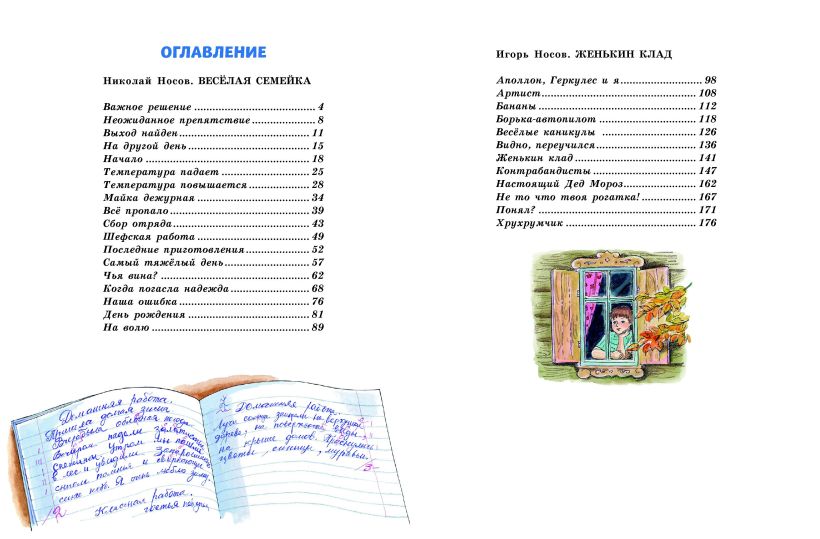 ОГЛАВЛЕНИЕ
Николай Носов. ВЕСЁЛАЯ СЕМЕЙКА
Важное решение ........................... 4
Неожиданное препятствие ............. 8
Выход найден ............................... 11
На другой день ............................. 15
Начало ........................................ 18
Температура падает ...................... 25
Температура повышается ............... 28
Майка дежурная ........................... 34
Всё пропало .................................. 39
Сбор отряда .................................. 43
Шефская работа ............................ 49
Последние приготовления ............... 52
Самый тяжёлый день ..................... 57
Чья вина? ..................................... 62
Когда погасла надежда ................... 68
Наша ошибка ................................ 76
День рождения .............................. 81
На волю ....................................... 89
Игорь Носов. ЖЕНЬКИН КЛАД
Аполлон, Геркулес и я .................... 98
Артист ........................................ 108
Бананы ........................................ 112
Борька-автопилот ......................... 118
Весёлые каникулы ......................... 126
Видно, переучился ......................... 136
Женькин клад ............................... 141
Контрабандисты ........................... 147
Настоящий Дед Мороз ................... 162
Не то что твоя рогатка! ................ 167
Понял? ........................................ 171
Хрухрумчик .................................. 176
Домашняя работа.
Пришла зима
Вечером падали
Утром
в лес и увидели
Я очень люблю зиму.
2
Классная работа.
Домашняя работа.
на крыше домов.
цветы, синицы, муравьи.